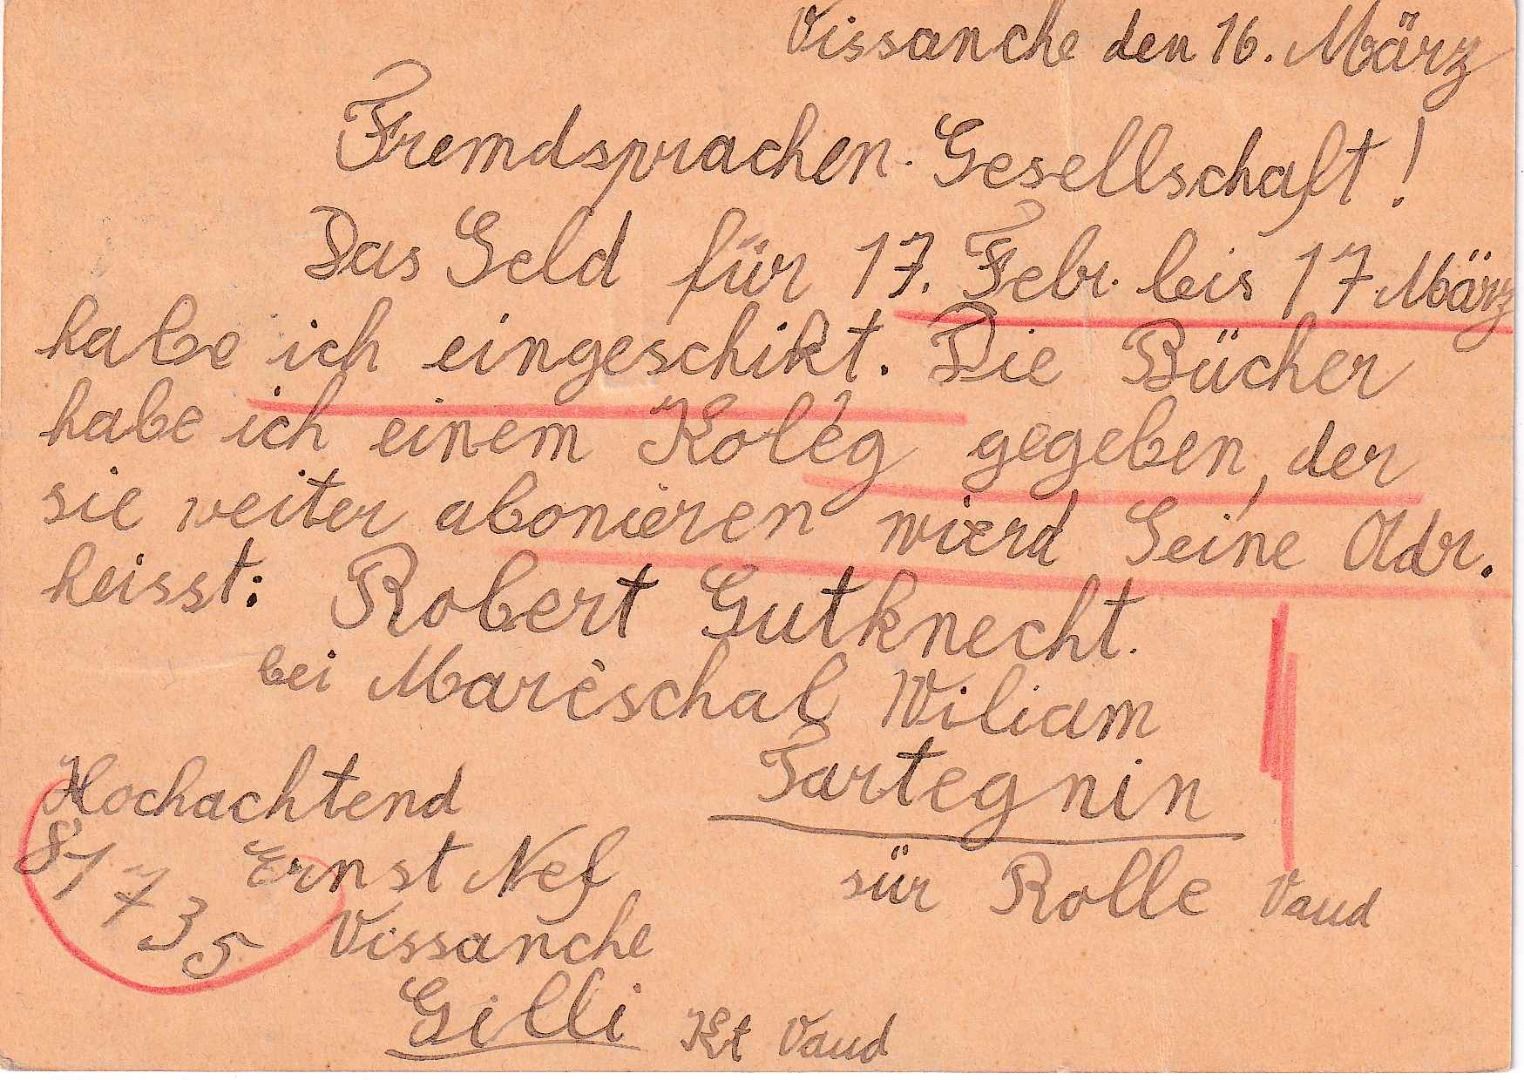 Vissanche den 16. März
Fremdsprachen-Gesellschaft!
Das Geld für 17. Febr. bis 17 März
habe ich eingeschikt. Die Bücher
habe ich einem Koleg gegeben, der
sie weiter abonieren wierd Seine Adr.
heisst: Robert Gutknecht.
bei Marèschal Wiliam
Tartegnin
sür Rolle Vaud
Hochachtend
Ernst Nef
Vissanche
Gilli Kt Vaud
81735